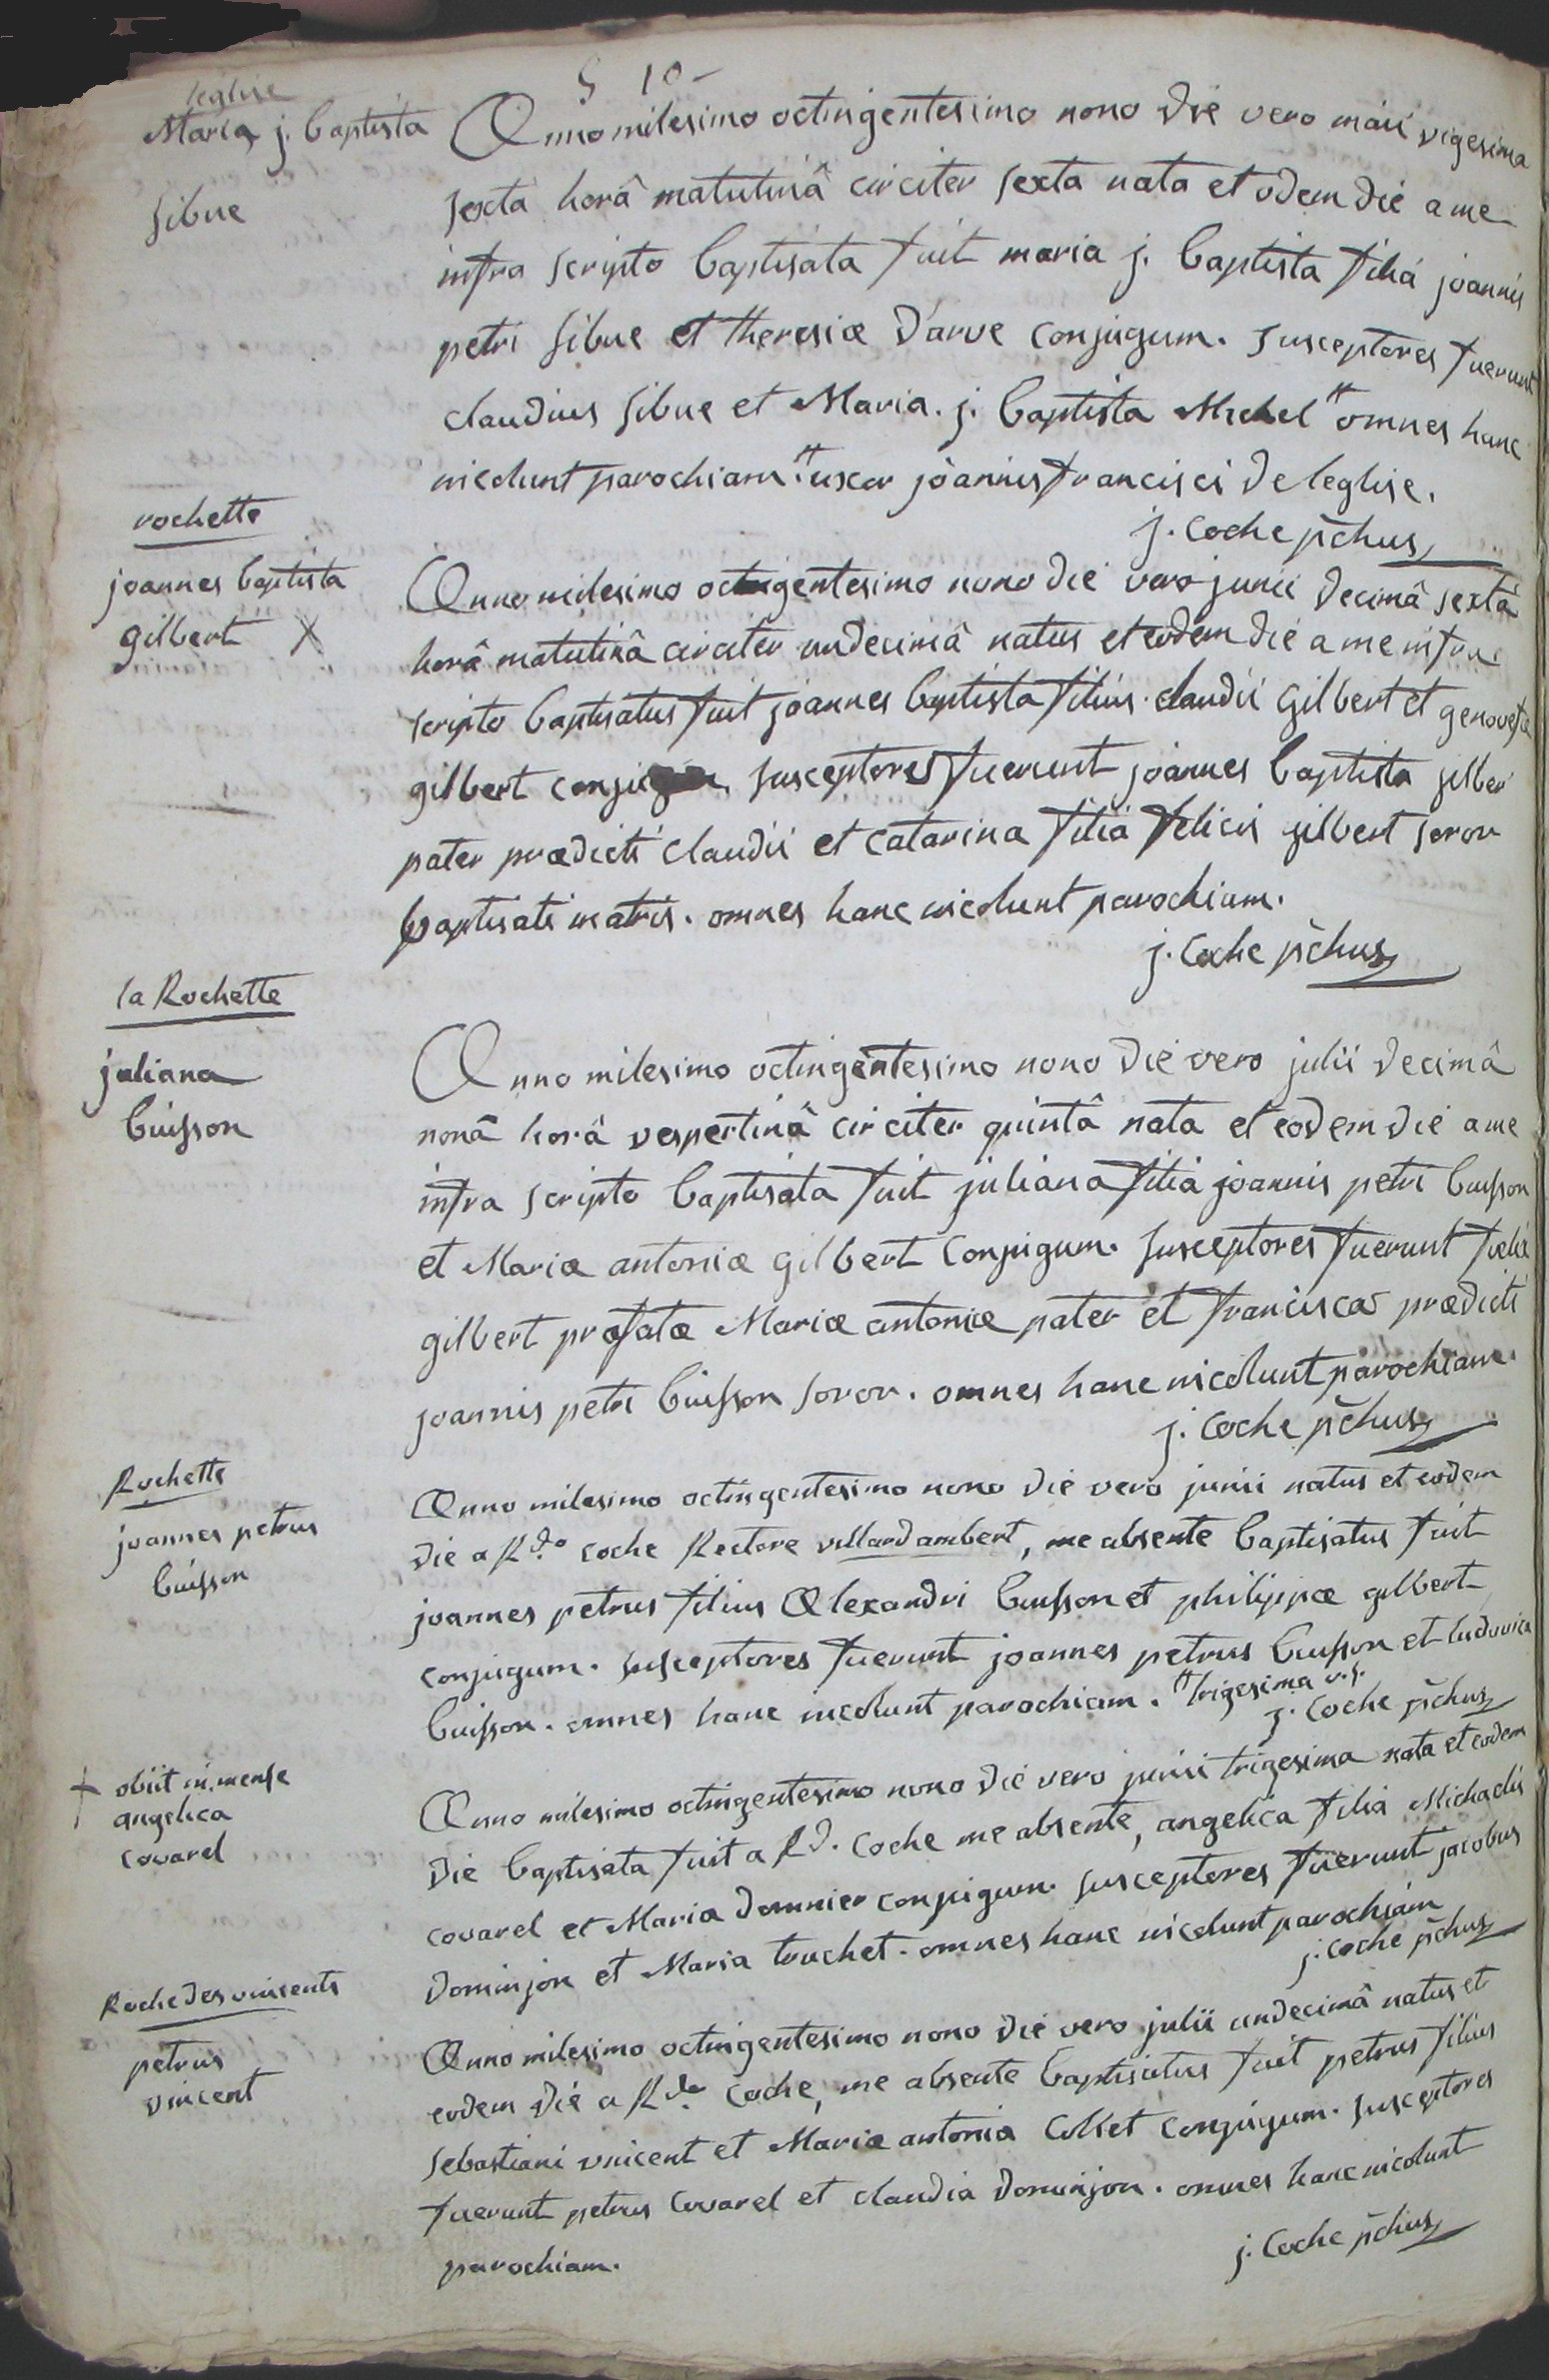 § 10
leglise
Maria j. baptista
sibue
Anno milesimo octingentesimo nono die vero maii vigesima
sexta horâ matutinâ circiter sexta nata et odem die a me
infra scripto baptisata fuit maria j. baptista filia joannis
petri sibue et theresiæ d'arve conjugum. susceptores fuerunt
claudius sibue et Maria. j. baptista Michel # omnes hanc
incolunt parochiam. # uxor joannis francisci de leglise.
j. coche pchus
rochette
joannes baptista
gilbert X
Anno milesimo octingentesimo nono die vero junii decimâ sextâ
horâ matutinâ circiter undecimâ natus et eodem die a me infra
scripto baptisatus fuit joannes baptista filius claudii gilbert et genovefæ
gilbert conjugum susceptores fuerunt joannes baptista gilber
pater prædicti claudii et catarina filia felicis gilbert soror
baptisati matris. omnes hanc incolunt parochiam.
j. coche pchus
la Rochette
juliana
buisson
Anno milesimo octingentesimo nono die vero julii decimâ
nonâ horâ vespertinâ circiter quintâ nata et eodem die a me
infra scripto baptisata fuit juliana filia joannis petri buisson
et Mariæ antoniæ gilbert conjugum. susceptores fuerunt felix
gilbert præfatæ Mariæ antoniæ pater et francisca prædicti
joannis petri buisson soror. omnes hanc incolunt parochiam.
j. coche pchus
Rochette
joannes petrus
buisson
Anno milesimo octingentesimo nono die vero junii natus et eodem
die a Rdo coche Rectore villardambert, me absente baptisatus fuit
joannes petrus filius Alexandri buisson et philippæ gilbert
conjugum. susceptores fuerunt joannes petrus buisson et ludovica
buisson. omnes hanc incolunt parochiam. # trigesima v.s.
j. coche pchus
+ obiit in mense
angelica
covarel
Anno milesimo octingentesimo nono die vero junii trigesima nata et eodem
die baptisata fuit a Rd. coche me absente, angelica filia Michaelis
covarel et Maria domnier conjugum. susceptores fuerunt jacobus
dominjon et Maria truchet. omnes hanc incolunt parochiam
j. coche pchus
Roche des vinsents
petrus
vincent
Anno milesimo octingentesimo nono die vero julii undecimâ natus et
eodem die a Rdo coche, me absente baptisatus fuit petrus filius
sebastiani vincent et Mariæ antonia Collet conjugum. susceptores
fuerunt petrus covarel et claudia dominjon. omnes hanc incolunt
parochiam.
j. coche pchus